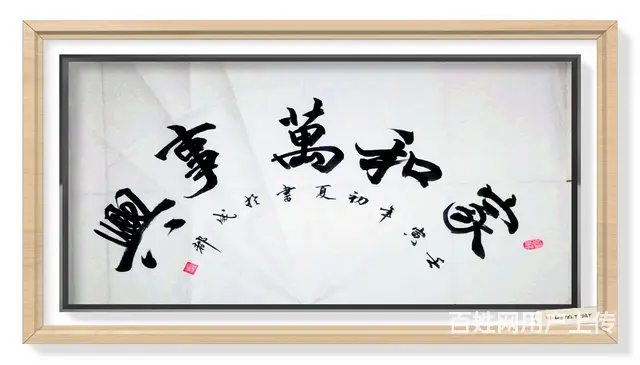 家和萬事興
壬寅年初夏書於成都
百姓网用户上传